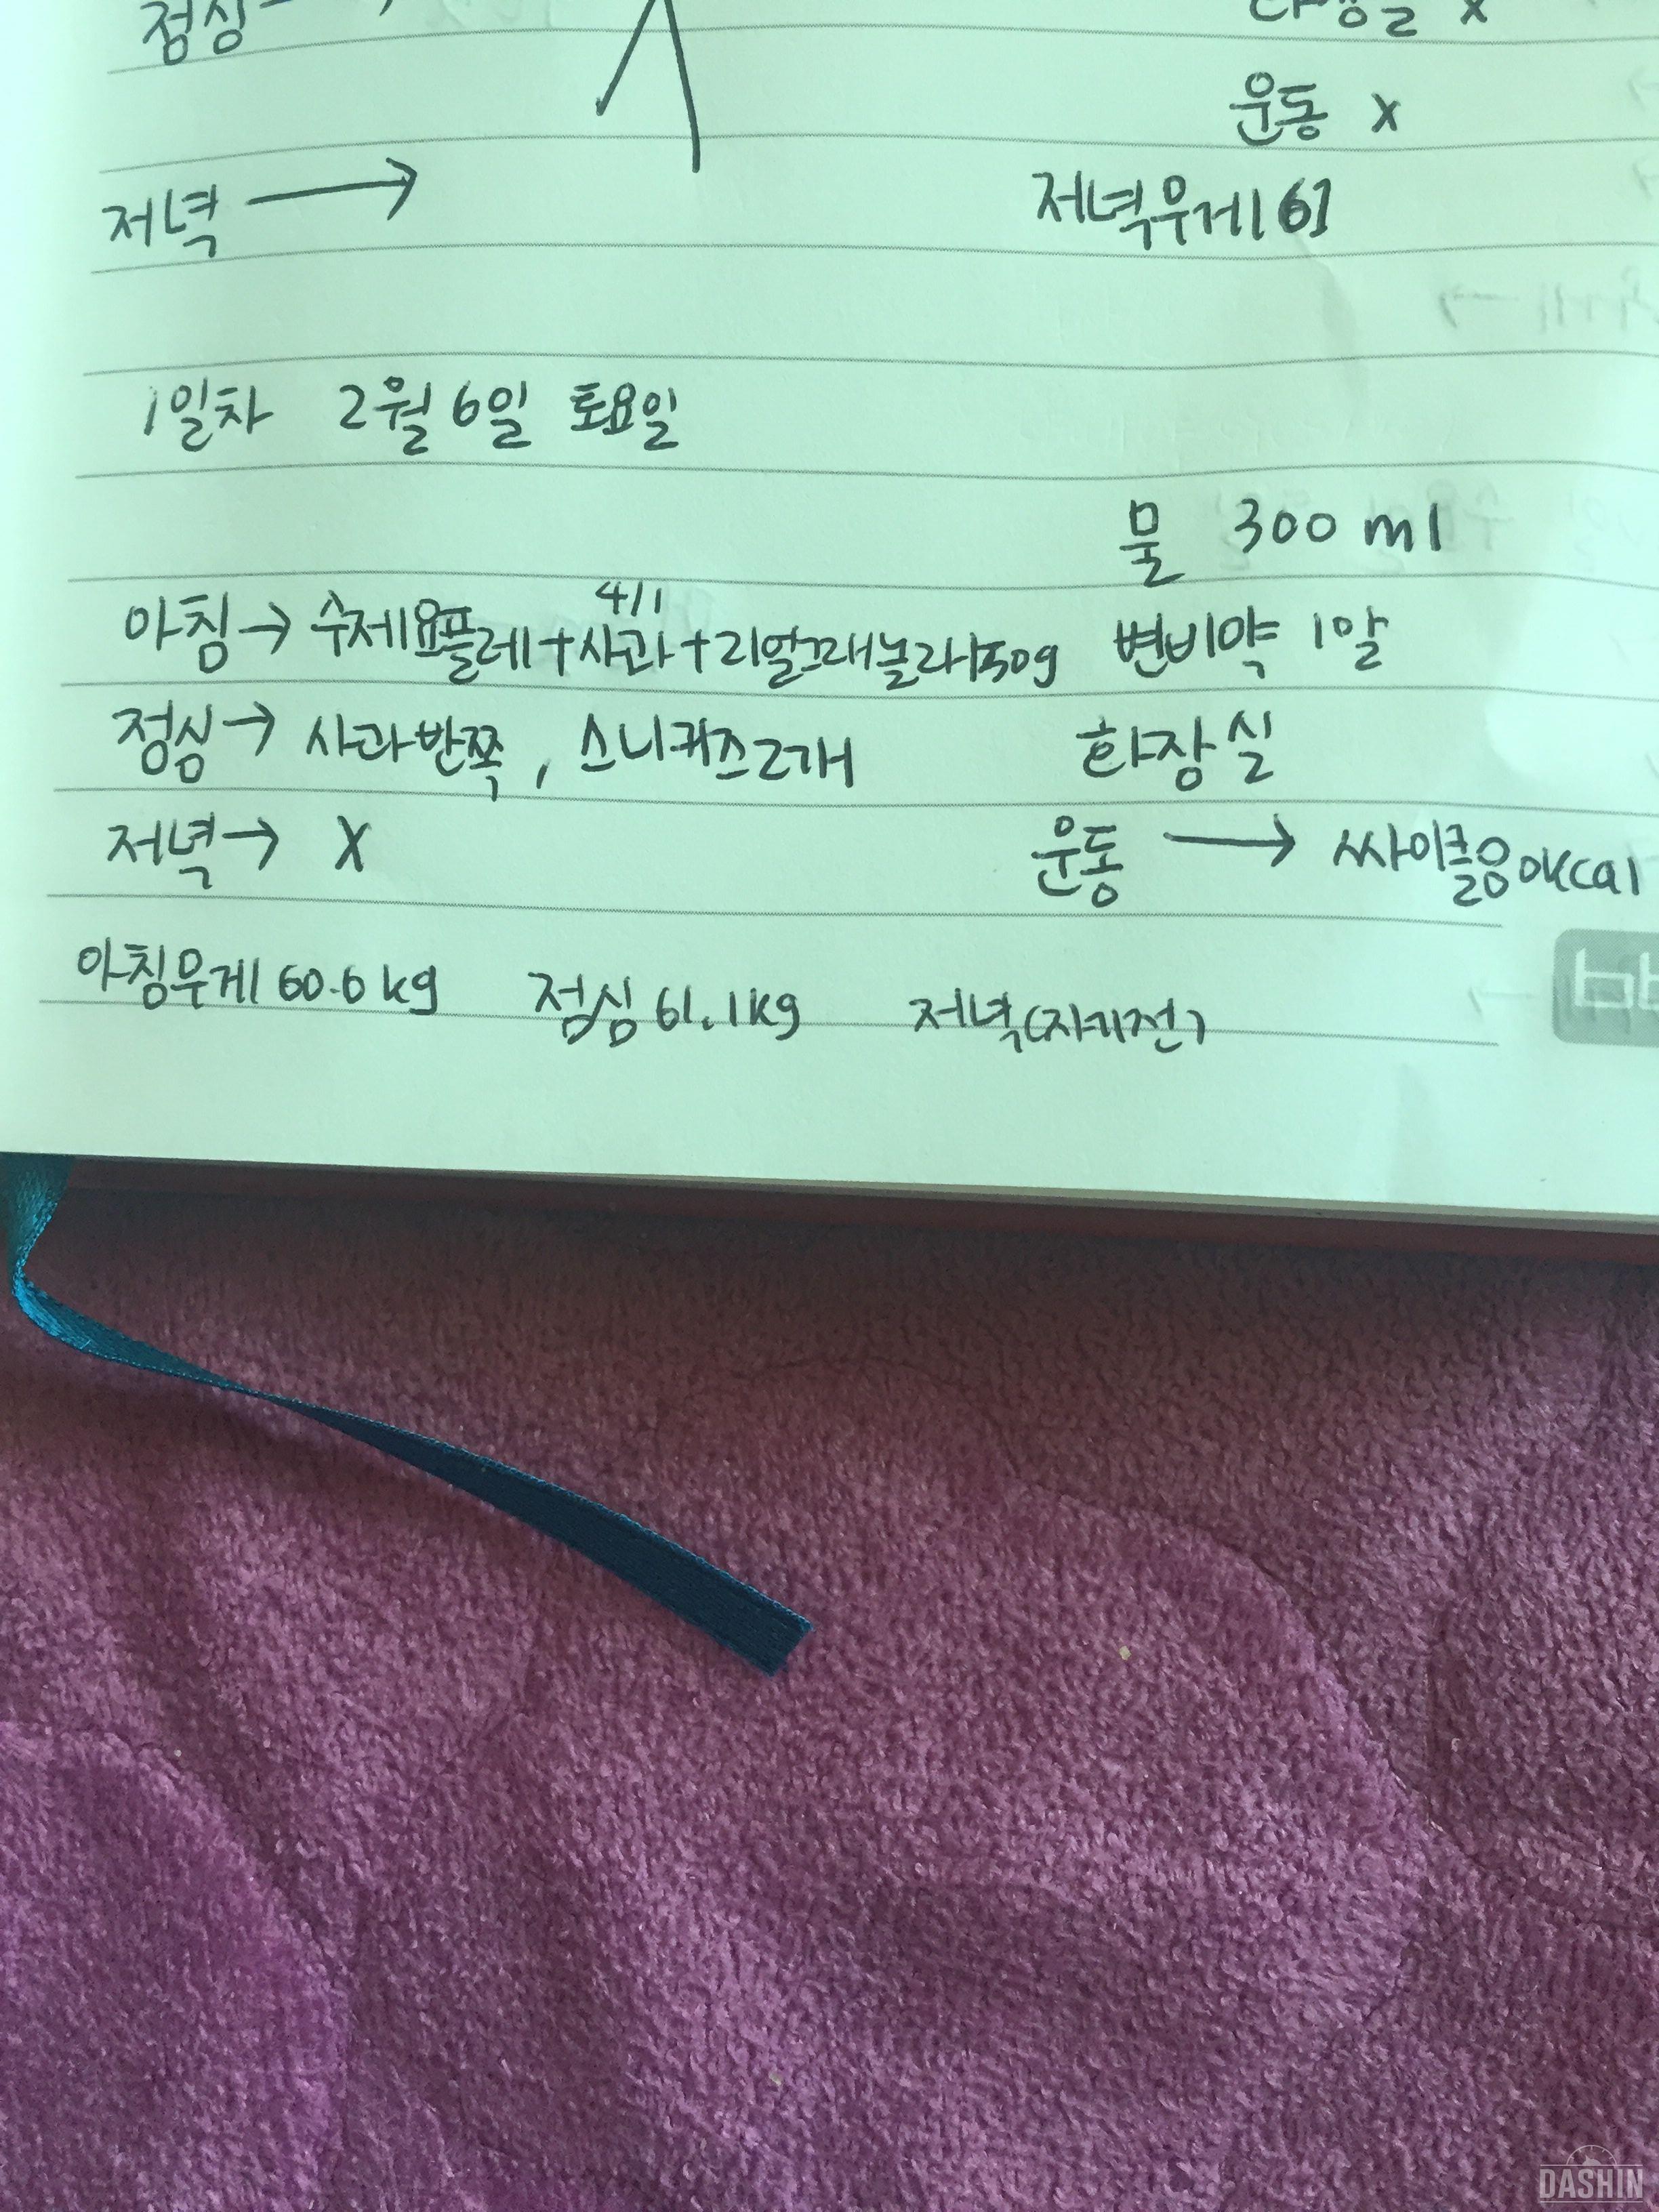 점심
운동 x
저녁 →
저녁무게 61
1일차 2월 6일 토요일
물 300 ml
4/1
아침→ 수제요플레+사과+리얼그래놀라50g 변비약 1알
점심→ 사과반쪽, 스니커즈2개 화장실
저녁→ X 운동 → 싸이클 kcal
아침무게 60.6kg 점심 61.1kg 저녁(자기전)
DASHIN